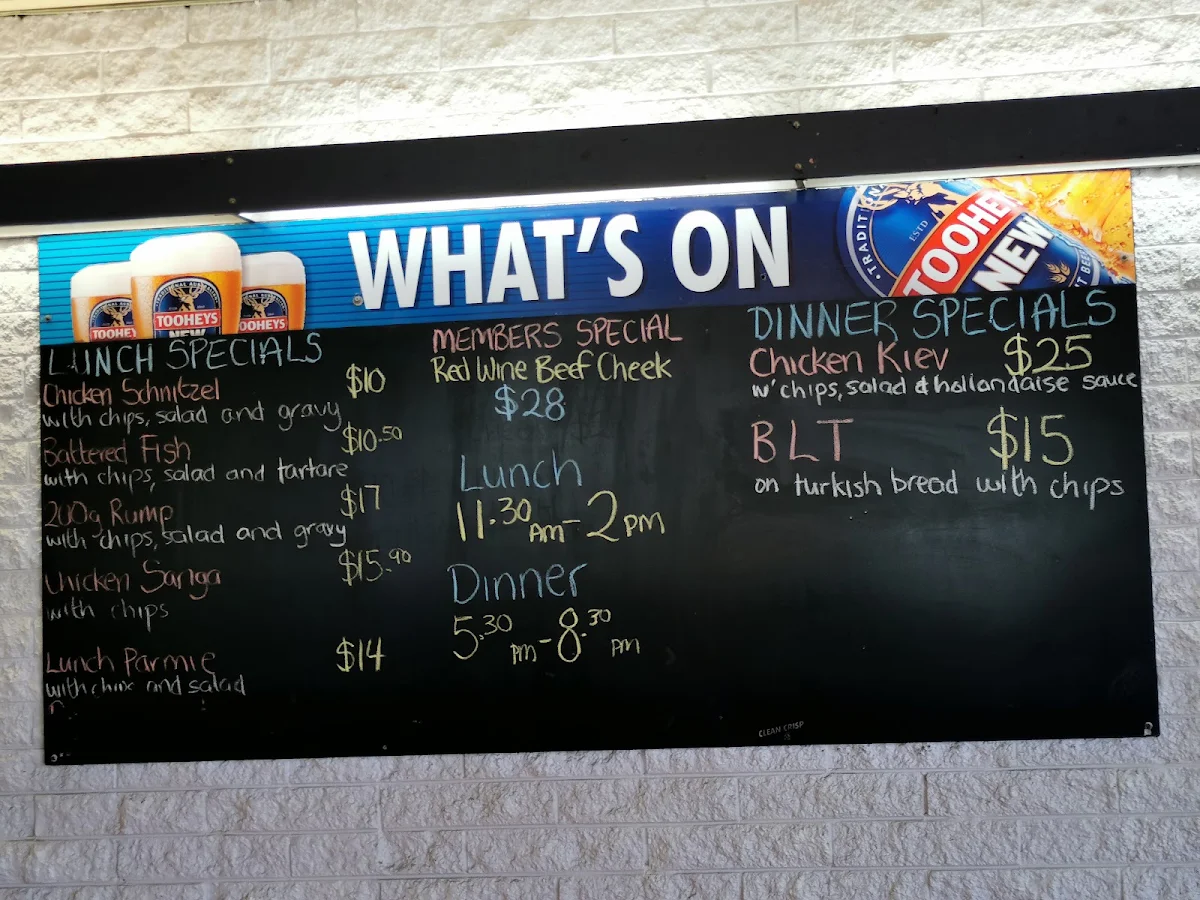 WHAT'S ON
TRADITION
ESTD
TOOHE
NEW
T BEE
TOOHE
TRADITIONAL AUSTRALIAN
TOOHEYS
NEW
TOOHEYS
LUNCH SPECIALS
Chicken Schnitzel $10
with chips, salad and gravy
Battered Fish $10.50
with chips, salad and tartare
200g Rump $17
with chips, salad and gravy
Chicken Sanga $15.90
with chips
Lunch Parmie $14
with chips and salad
MEMBERS SPECIAL
Red Wine Beef Cheek
$28
Lunch
11.30 Am - 2 pm
Dinner
5.30 pm - 8.30 pm
DINNER SPECIALS
Chicken Kiev $25
w' chips, salad & hollandaise sauce
BLT $15
on turkish bread with chips
CLEAN CRISP